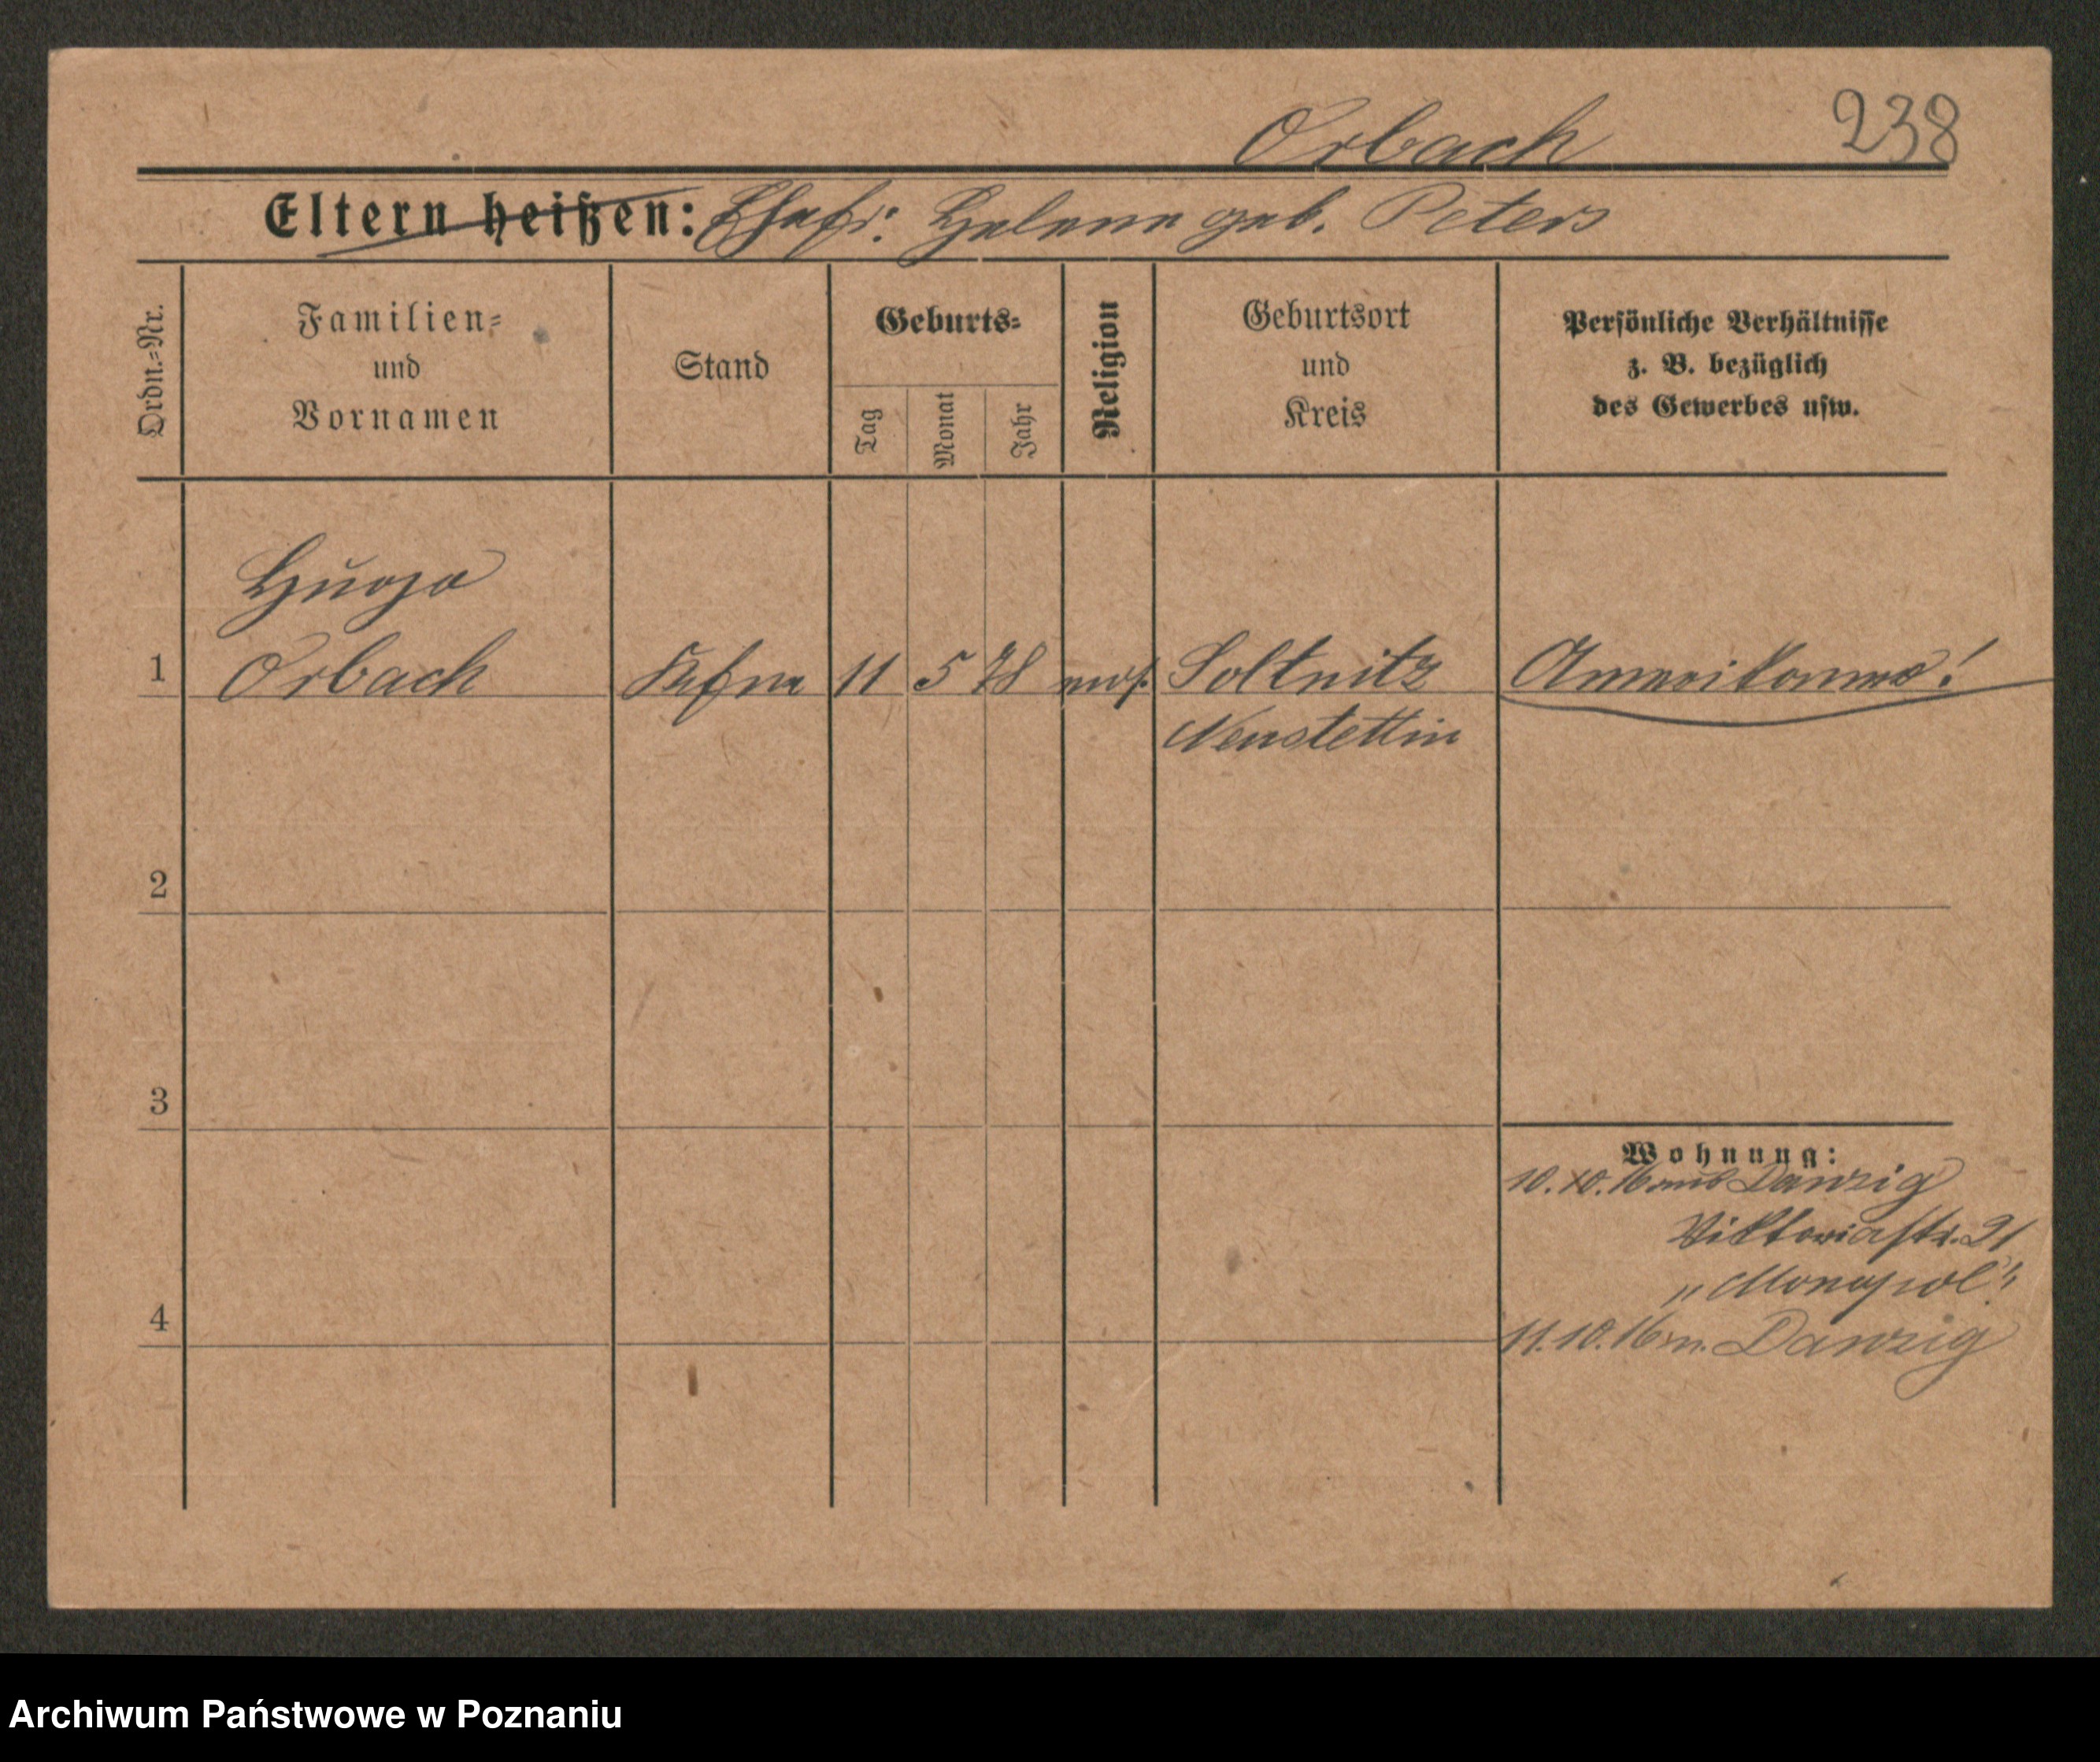 Orbach 238
Eltern heißen: Ehefr: Helene geb. Peters
Ordn.=Nr.
Familien=
und
Vornamen
Stand
Geburts=
Tag
Monat
Jahr
Religion
Geburtsort
und
Kreis
Persönliche Verhältnisse
z. B. bezüglich
des Gewerbes usw.
Hugo
1 Orbach Kfm 11 5 78 Soltnitz Amerikaner!
Neustettin
2
3
Wohnung:
10. 10. 16 aus Danzig
Viktoriastr. 21
"Monopol"
4
11. 10. 16 n. Danzig
Archiwum Państwowe w Poznaniu